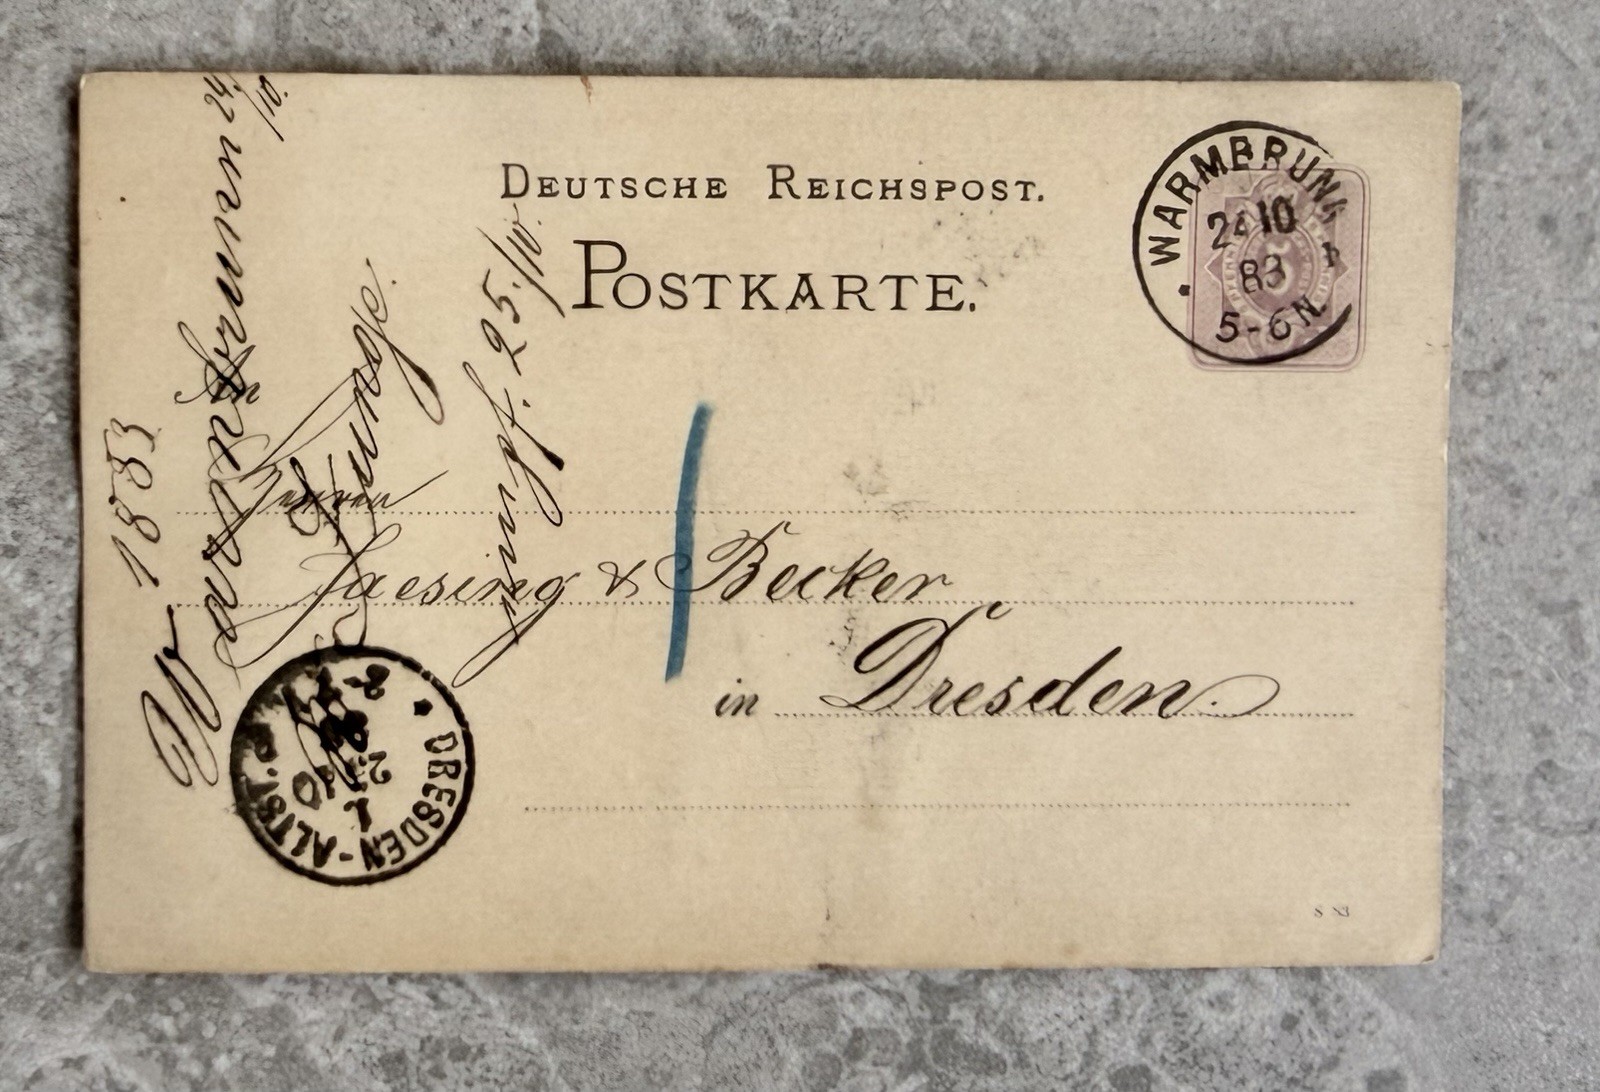 DEUTSCHE REICHSPOST.
POSTKARTE.
WARMBRUNN
24 10
83
5-6N
An
Herren
Jaesing & Becker
in Dresden.
1883
Warmbrunn 24/10.
Junge.
empf. 25./10.
DRESDEN-ALTST.
8 83